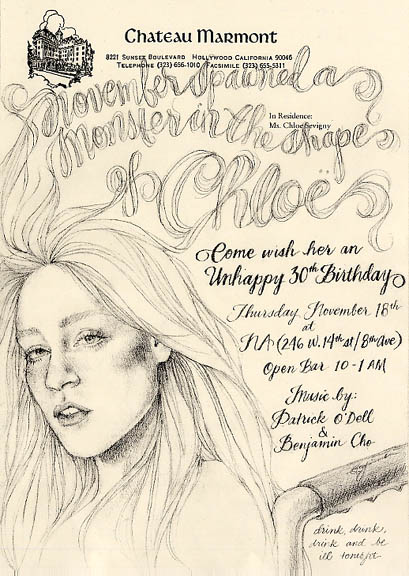 Chateau Marmont
8221 Sunset Boulevard Hollywood California 90046
Telephone (323) 656-1010 Facsimile (323) 655-5311
November spawned a
Monster in the shape
In Residence:
Ms. Chloe Sevigny
of Chloë
Come wish her an
Unhappy 30th Birthday
Thursday November 18th
at
NA (246 W. 14th st / 8th Ave)
Open Bar 10-1 AM
Music by:
Patrick O'Dell
&
Benjamin Cho
drink, drink,
drink and be
ill tonight